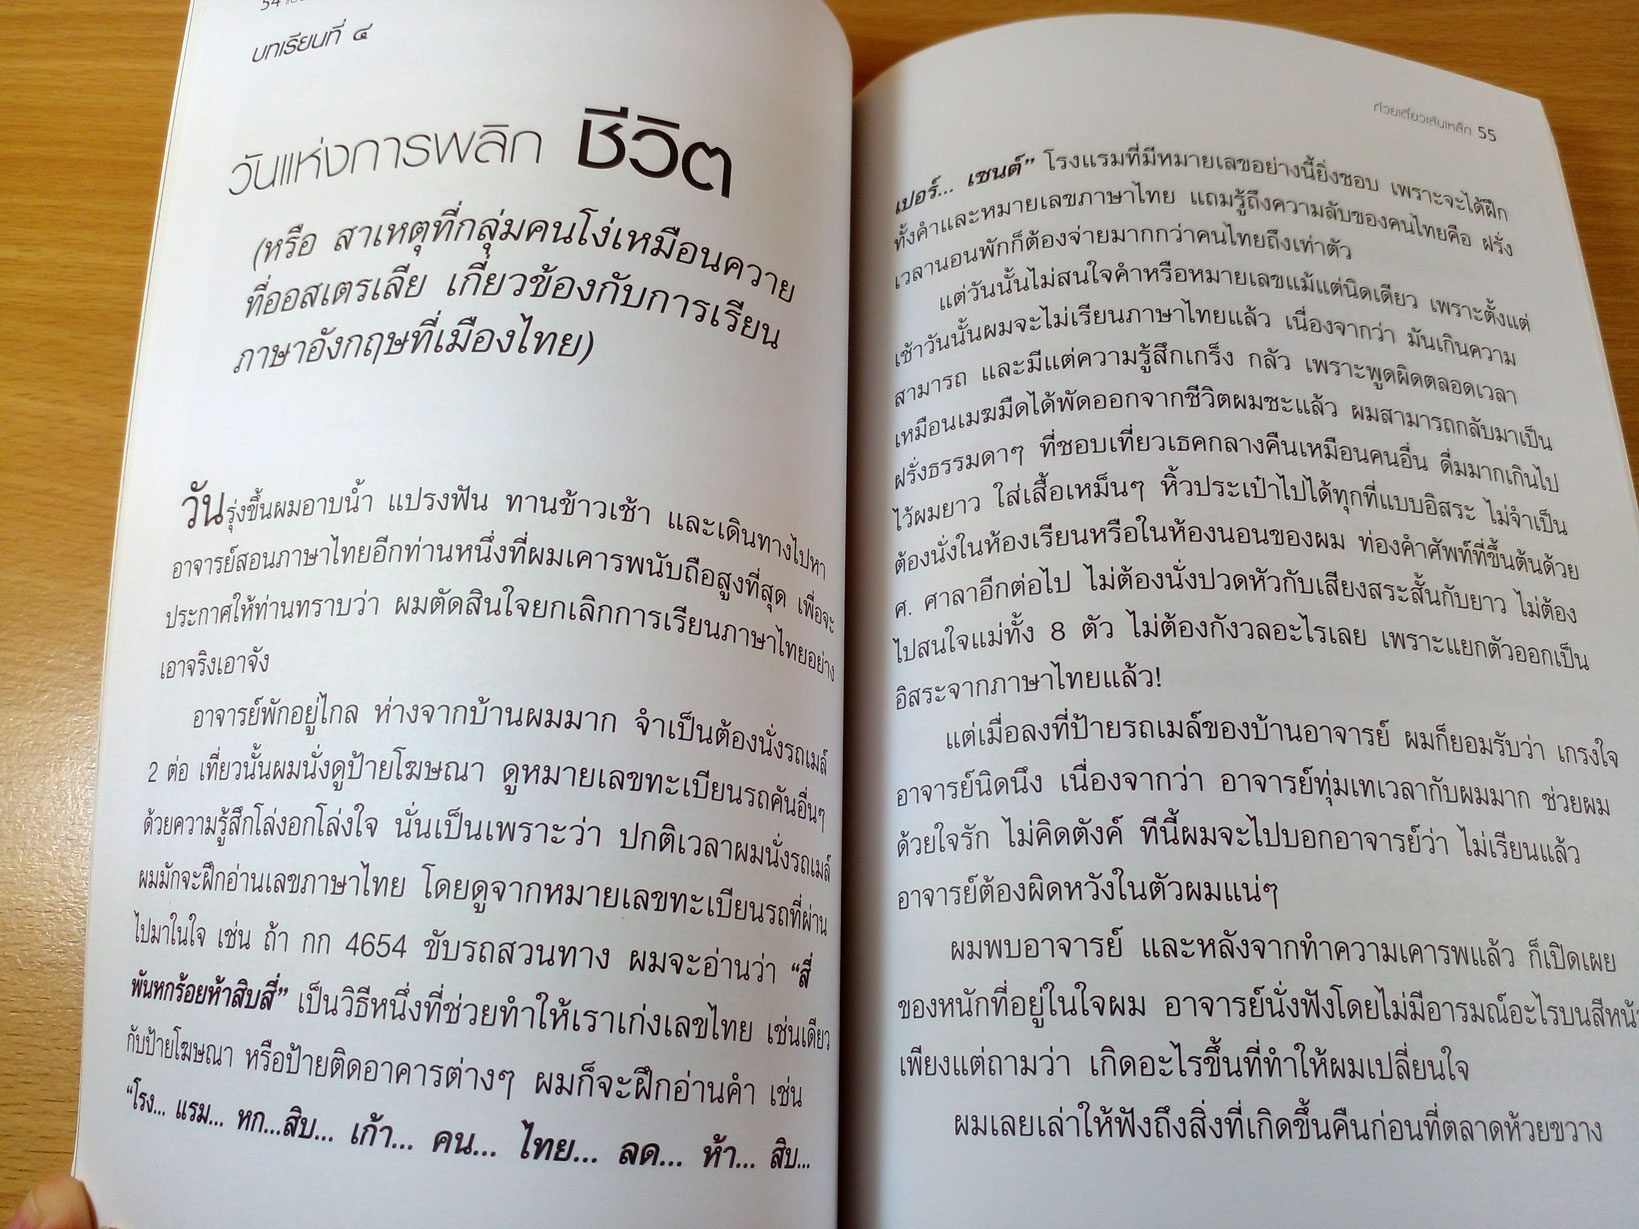 54
บทเรียนที่ ๔
วันแห่งการพลิก ชีวิต
(หรือ สาเหตุที่กลุ่มคนโง่เหมือนควาย
ที่ออสเตรเลีย เกี่ยวข้องกับการเรียน
ภาษาอังกฤษที่เมืองไทย)
วันรุ่งขึ้นผมอาบน้ำ แปรงฟัน ทานข้าวเช้า และเดินทางไปหา
อาจารย์สอนภาษาไทยอีกท่านหนึ่งที่ผมเคารพนับถือสูงที่สุด เพื่อจะ
ประกาศให้ท่านทราบว่า ผมตัดสินใจยกเลิกการเรียนภาษาไทยอย่าง
เอาจริงเอาจัง
อาจารย์พักอยู่ไกล ห่างจากบ้านผมมาก จำเป็นต้องนั่งรถเมล์
2 ต่อ เที่ยวนั้นผมนั่งดูป้ายโฆษณา ดูหมายเลขทะเบียนรถคันอื่นๆ
ด้วยความรู้สึกโล่งอกโล่งใจ นั่นเป็นเพราะว่า ปกติเวลาผมนั่งรถเมล์
ผมมักจะฝึกอ่านเลขภาษาไทย โดยดูจากหมายเลขทะเบียนรถที่ผ่าน
ไปมาในใจ เช่น ถ้า กก 4654 ขับรถสวนทาง ผมจะอ่านว่า “สี่
พันหกร้อยห้าสิบสี่” เป็นวิธีหนึ่งที่ช่วยทำให้เราเก่งเลขไทย เช่นเดียว
กับป้ายโฆษณา หรือป้ายติดอาคารต่างๆ ผมก็จะฝึกอ่านคำ เช่น
“โรง... แรม... หก...สิบ... เก้า... คน... ไทย... ลด... ห้า... สิบ...
ก๋วยเตี๋ยวเส้นเหล็ก 55
เปอร์... เซนต์” โรงแรมที่มีหมายเลขอย่างนี้ยิ่งชอบ เพราะจะได้ฝึก
ทั้งคำและหมายเลขภาษาไทย แถมรู้ถึงความลับของคนไทยคือ ฝรั่ง
เวลานอนพักก็ต้องจ่ายมากกว่าคนไทยถึงเท่าตัว
แต่วันนั้นไม่สนใจคำหรือหมายเลขแม้แต่นิดเดียว เพราะตั้งแต่
เช้าวันนั้นผมจะไม่เรียนภาษาไทยแล้ว เนื่องจากว่า มันเกินความ
สามารถ และมีแต่ความรู้สึกเกร็ง กลัว เพราะพูดผิดตลอดเวลา
เหมือนเมฆมืดได้พัดออกจากชีวิตผมซะแล้ว ผมสามารถกลับมาเป็น
ฝรั่งธรรมดาๆ ที่ชอบเที่ยวเธคกลางคืนเหมือนคนอื่น ดื่มมากเกินไป
ไว้ผมยาว ใส่เสื้อเหม็นๆ หิ้วประเป๋าไปได้ทุกที่แบบอิสระ ไม่จำเป็น
ต้องนั่งในห้องเรียนหรือในห้องนอนของผม ท่องคำศัพท์ที่ขึ้นต้นด้วย
ศ. ศาลาอีกต่อไป ไม่ต้องนั่งปวดหัวกับเสียงสระสั้นกับยาว ไม่ต้อง
ไปสนใจแม่ทั้ง 8 ตัว ไม่ต้องกังวลอะไรเลย เพราะแยกตัวออกเป็น
อิสระจากภาษาไทยแล้ว!
แต่เมื่อลงที่ป้ายรถเมล์ของบ้านอาจารย์ ผมก็ยอมรับว่า เกรงใจ
อาจารย์นิดนึง เนื่องจากว่า อาจารย์ทุ่มเทเวลากับผมมาก ช่วยผม
ด้วยใจรัก ไม่คิดตังค์ ทีนี้ผมจะไปบอกอาจารย์ว่า ไม่เรียนแล้ว
อาจารย์ต้องผิดหวังในตัวผมแน่ๆ
ผมพบอาจารย์ และหลังจากทำความเคารพแล้ว ก็เปิดเผย
ของหนักที่อยู่ในใจผม อาจารย์นั่งฟังโดยไม่มีอารมณ์อะไรบนสีหน้า
เพียงแต่ถามว่า เกิดอะไรขึ้นที่ทำให้ผมเปลี่ยนใจ
ผมเลยเล่าให้ฟังถึงสิ่งที่เกิดขึ้นคืนก่อนที่ตลาดห้วยขวาง